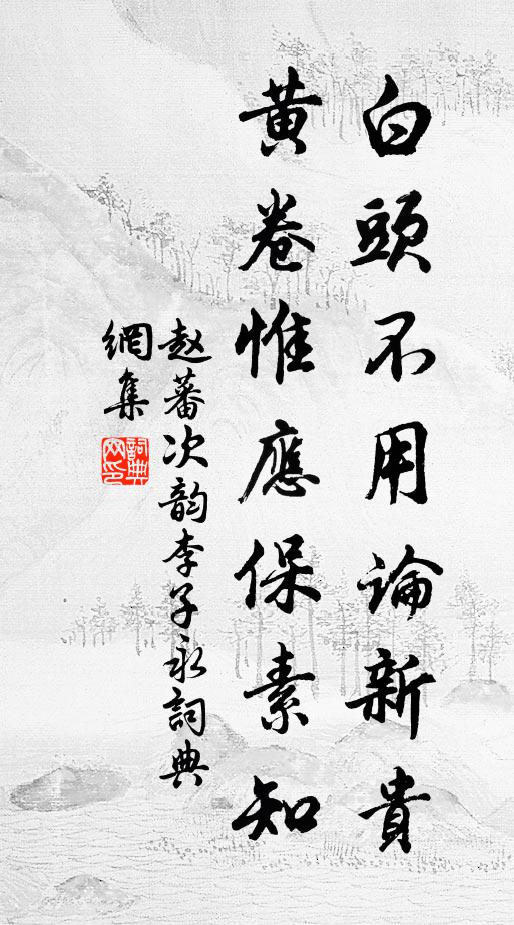 白頭不用論新貴
黃卷惟應保素知
赵蕃次韵李子永詞典
網集
詞典網印